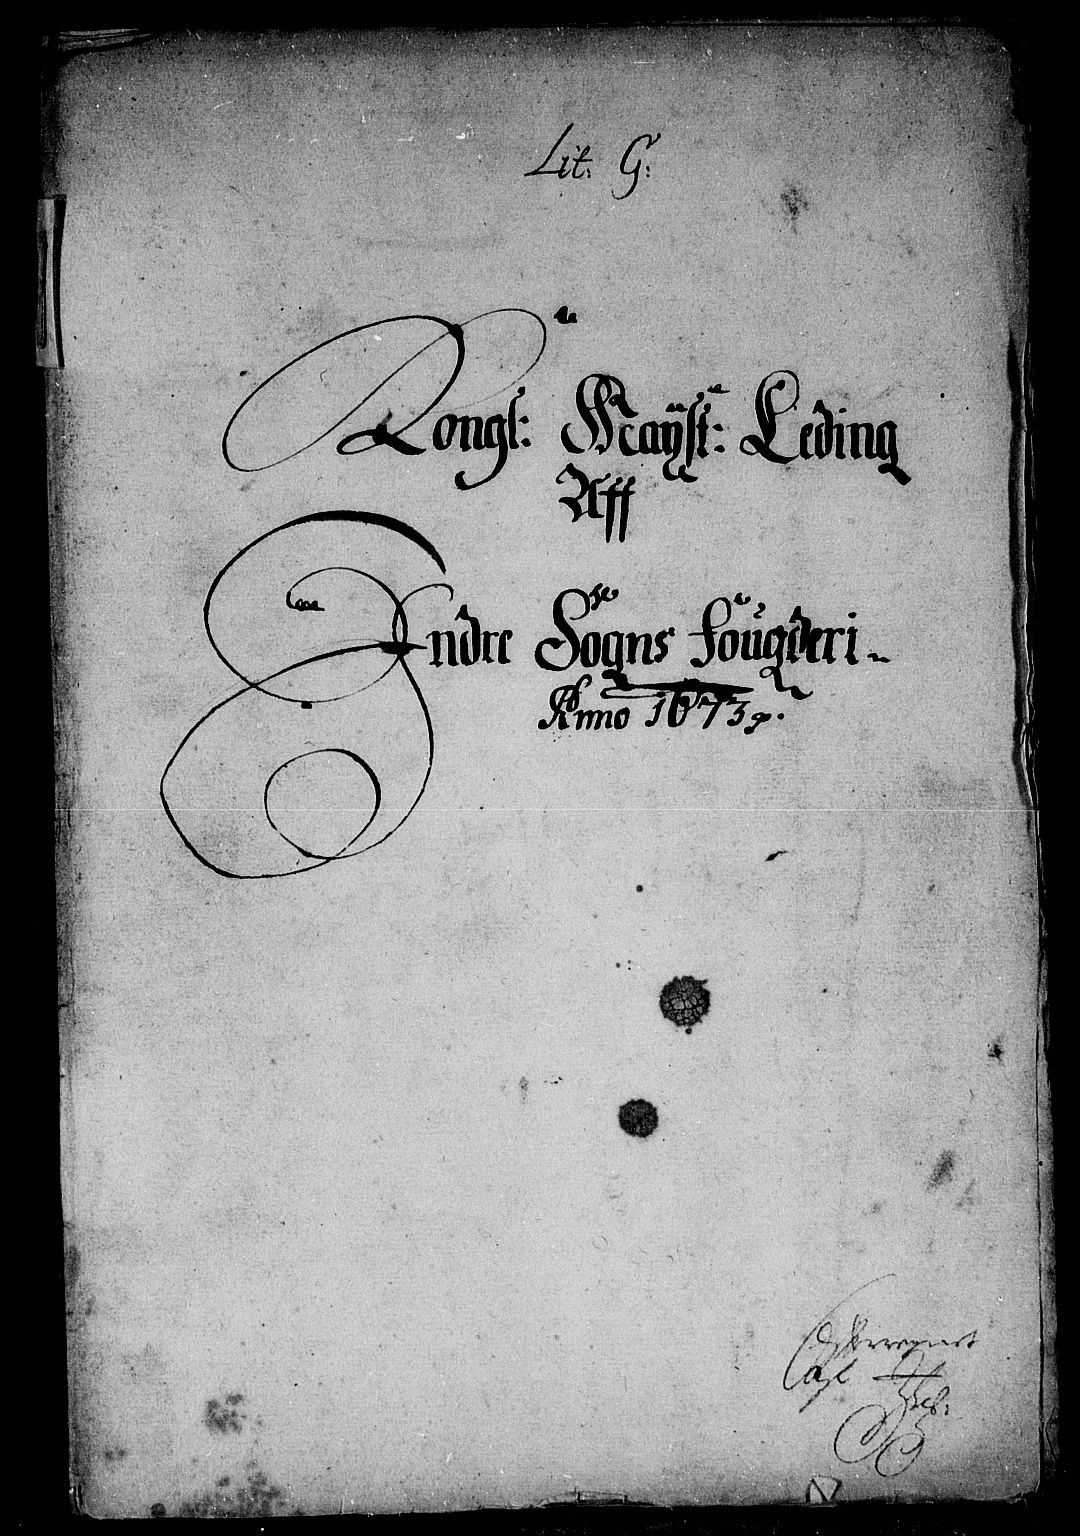 Lit: G:
Kongl: Maÿst: Leding
Aff
Indre Sogns fougderi
Anno 1673